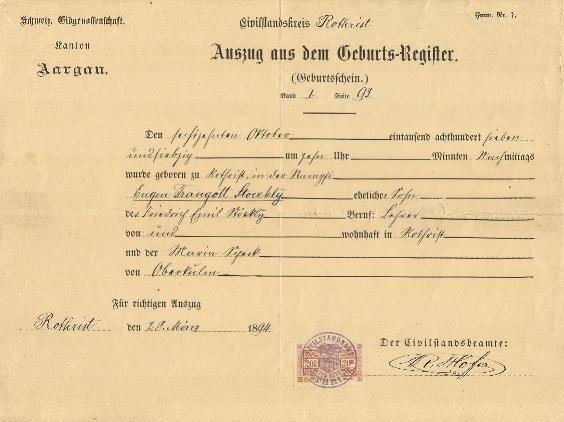 Schweiz. Eidgenossenschaft.
Kanton
Aargau.
Civilstandskreis Rothrist
Form. Nr. 7.
Auszug aus dem Geburts-Register.
(Geburtschein.)
Band 1. Seite 93
Den sechzehnten Oktober eintausend achthundert sieben
undsiebzig um zehn Uhr Minuten Nachmittags
wurde geboren zu Rothrist, in der
Eugen Traugott Stoeckly eheliche Sohn
des Friedrich Emil Stöckly Beruf: Lehrer
von und wohnhaft in Rothrist
und der Maria
von Oberkulm
Für richtigen Auszug
Rothrist den 28 März 1894.
Der Civilstandsbeamte:
Hofer
20
20